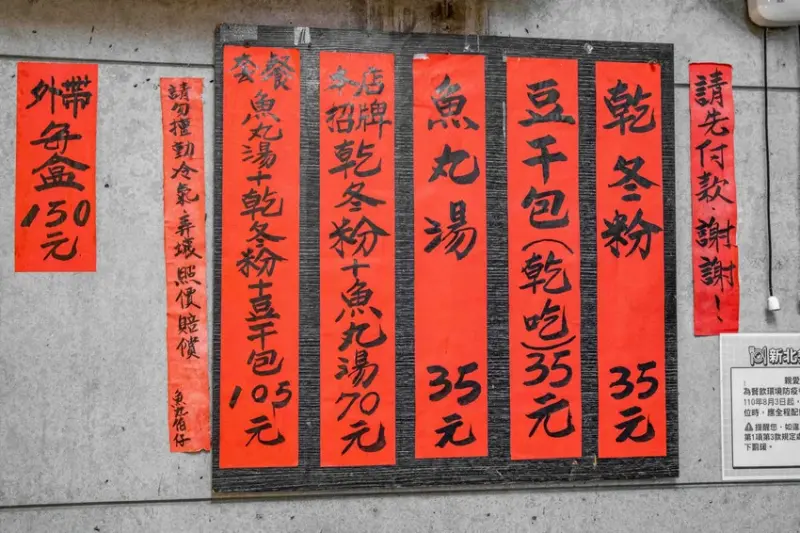 請先付款.謝謝!
乾冬粉 35元
豆干包(乾吃)35元
魚丸湯 35元
本店招牌 乾冬粉+魚丸湯70元
套餐 魚丸湯+乾冬粉+豆干包105元
請勿擅動冷氣.弄壞照價賠償 魚丸伯仔
外帶每盒150元
新北
親愛
為餐飲環境防疫
110年8月3日起,
位時,應全程配
提醒您,如違
第1項第3款規定處
下罰鍰。